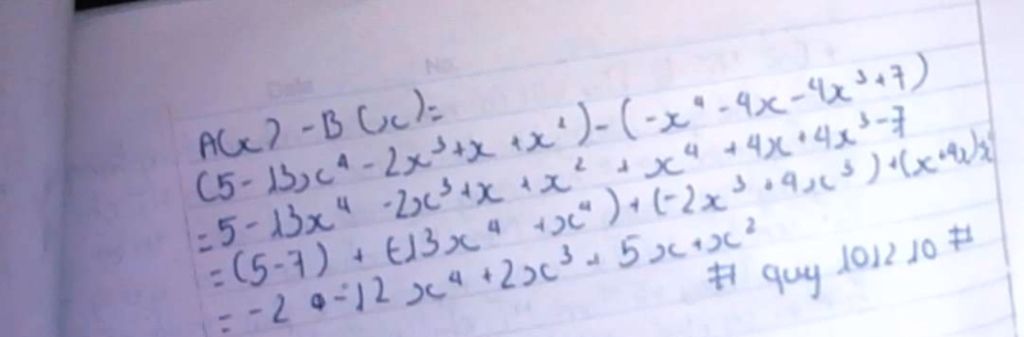 Date No.
A(x) - B(x) =
(5 - 13x⁴ - 2x³ + x + x²) - (-x⁴ - 4x - 4x³ + 7)
= 5 - 13x⁴ - 2x³ + x + x² + x⁴ + 4x + 4x³ - 7
= (5 - 7) + (-13x⁴ + x⁴) + (-2x³ + 4x³) + (x + 4x) x²
= -2 + -12x⁴ + 2x³ + 5x + x²
# quy 101210 #